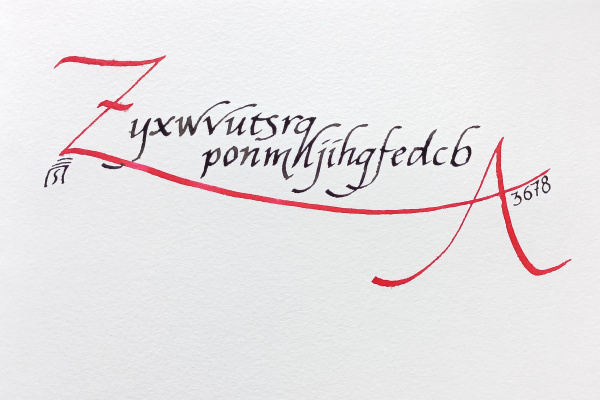 Zyxwvutsrq
ponmlkjihgfedcbA
3678